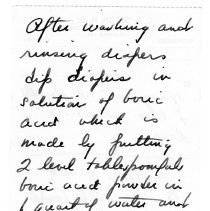 After washing and
rinsing diapers
dip diapers in
solution of boric
acid which is
made by putting
2 level tablespoonfuls
boric acid powder in
1 quart of water and